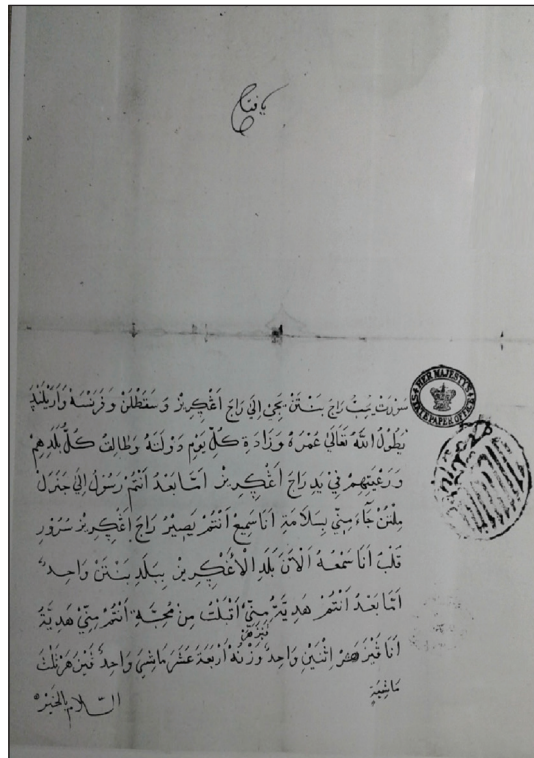 يا فتاح
HER MAJESTY'S STATE PAPER OFFICE
سُوْرَتْ رَاجَ بَنْتَنْ يَجِيْ اِلَي رَاجَ اَڠْكِرِيْزْ وَسَقَطْلَنْ وَفَرَنْسَهْ وَاَرْيْلَنْدَ
يَطُوْلُ اللّٰهُ تَعَالَي عُمْرَهُ وَزَادَةِ كُلِّ يَوْمٍ دَوْلَتَهُ وَطَالِقُ كُلُّ بَلَدِهِمْ
وَرَعْيَتِهِمْ فِيْ يَدِ رَاجَ اَڠْكِرِيزْ اَمَّا بَعْدُ اَنْتُمْ رَسُوْلُ اِلَي جَنْرَلْ
مِلْتَنْ جَاءَ مِنِّي بِسَلَامَةِ اَنَا سَمِعَ اَنْتُمْ يَصِيْرُ رَاجَ اَڠْكِرِيزْ سُرُوْرِ
قَلْبُ اَنَا سَمْعُهُ اَلْآنَ بَلَدِ الْاَڠْكِرِيزْ بِبَلَدِ بَنْتَنْ وَاحِدٌ
اَمَّا بَعْدُ اَنْتُمْ هَدِيَّةُ مِنِّيْ اَقْبَلْتُ مِنْ مُحِبَّةِ اَنْتُمْ مِنِّيْ هَدِيَّةُ
اَنَا اِثْنَيْنِ وَاحِدٌ وَزْنُهُ اَرْبَعَةَ عَشَرَ مَاشِيَ وَاحِدٌ ثَلٰثَ
مَاشِيَةٍ
السَّلَام بِالْخَيْر